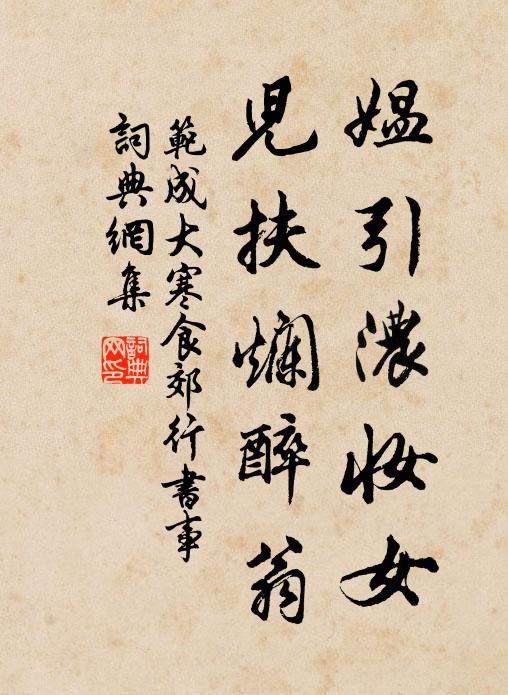 媪引濃妝女
兒扶爛醉翁
範成大寒食郊行書事
詞典網集
詞典
网印